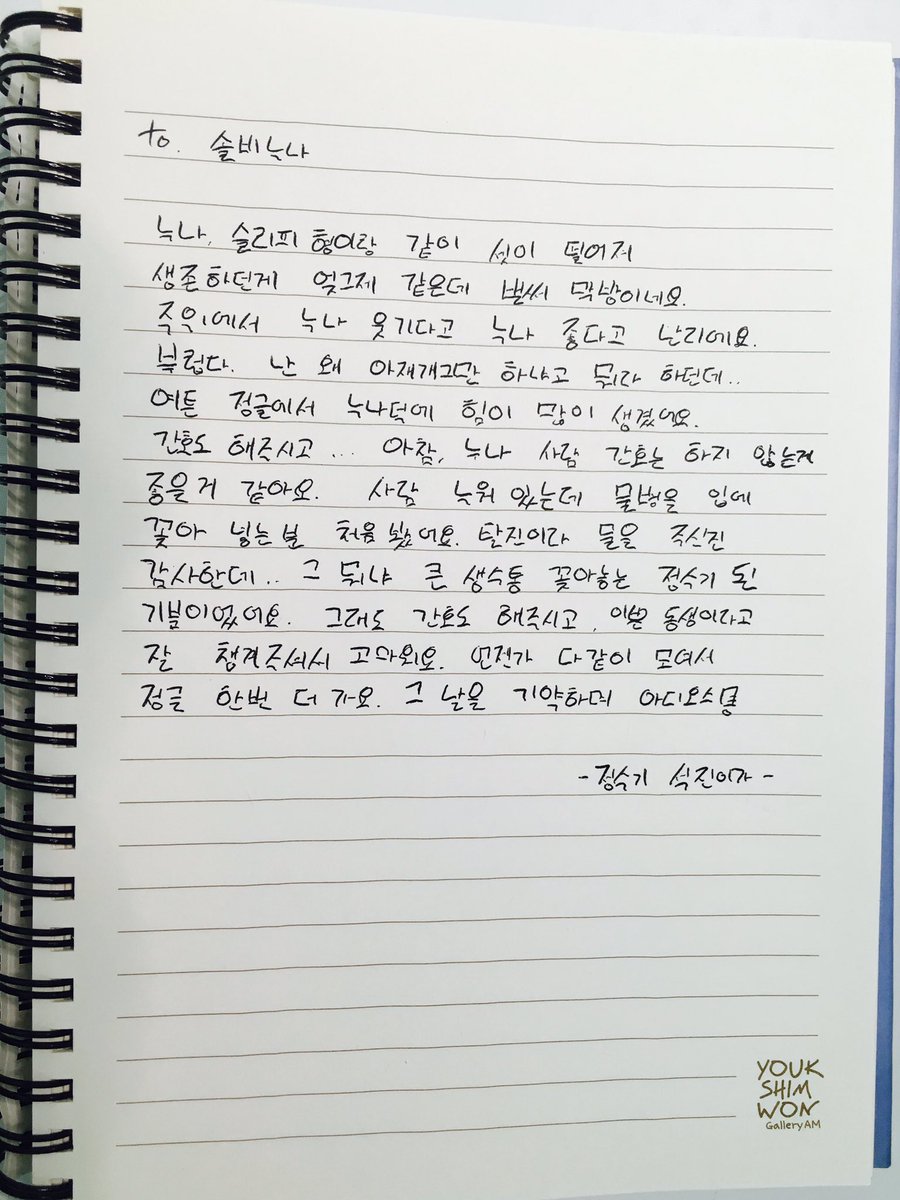 to. 솔비누나
누나, 슬리피 형이랑 같이 셋이 떨어져
생존하던게 엊그제 같은데 벌써 막방이네요.
주위에서 누나 웃기다고 누나 좋다고 난리에요.
부럽다. 난 왜 아재개그만 하냐고 뭐라 하던데..
여튼 정글에서 누나덕에 힘이 많이 생겼어요.
간호도 해주시고... 아참, 누나 사람 간호는 하지 않는게
좋을거 같아요. 사람 누워있는데 물병을 입에
꽂아 넣는분 처음 봤어요. 탈진이라 물을 주신건
감사한데.. 그 뭐냐 큰 생수통 꽂아놓는 정수기 된
기분이었어요. 그래도 간호도 해주시고, 이쁜 동생이라고
잘 챙겨주셔서 고마워요. 언젠가 다같이 모여서
정글 한번 더 가요. 그 날을 기약하며 아디오스
-정수기 석진이가-
YOUK
SHIM
WON
GalleryAM